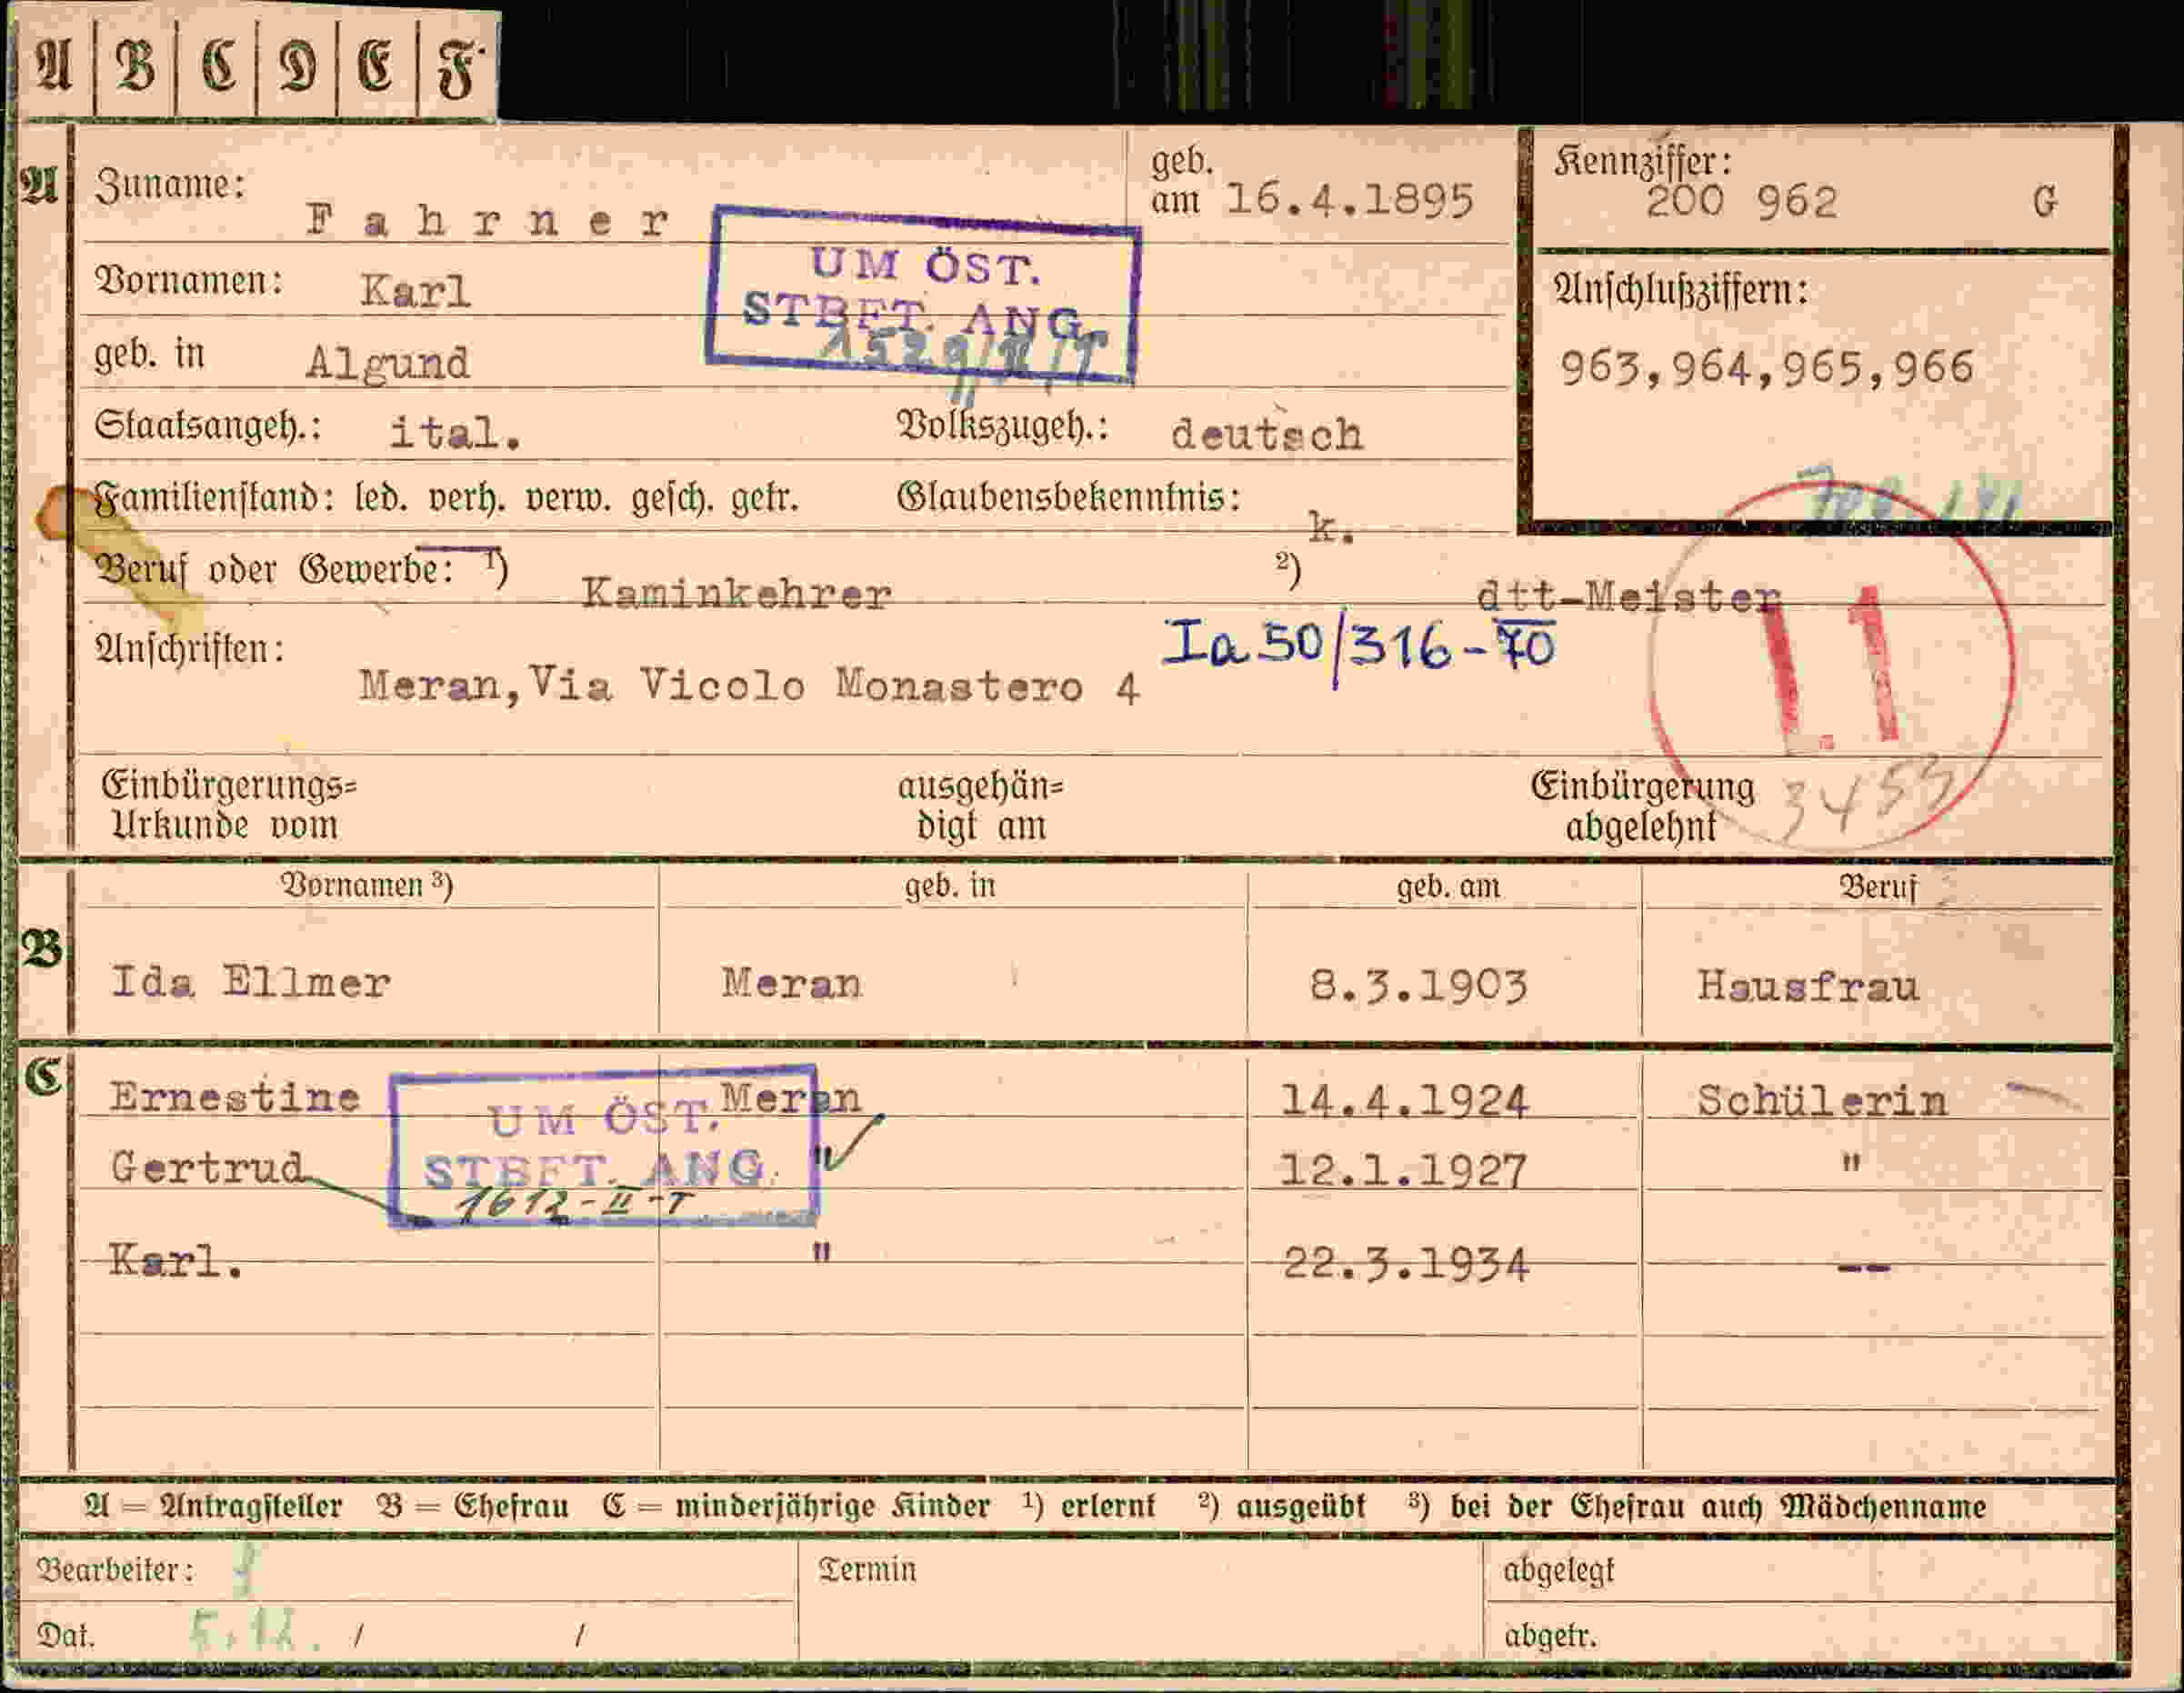 A B C D E F
A Zuname: Fahrner geb. am 16.4.1895
Kennziffer: 200 962 G
UM ÖST.
STBFT. ANG.
Vornamen: Karl
geb. in Algund
Anschlußziffern:
963,964,965,966
Staatsangeh.: ital. Volkszugeh.: deutsch
Familienstand: led. verh. verw. gesch. getr. Glaubensbekenntnis: k.
Beruf oder Gewerbe: 1) Kaminkehrer 2) dtt-Meister
Ia 50/316-70
L1
Anschriften:
Meran,Via Vicolo Monastero 4
3453
Einbürgerungs= ausgehän= Einbürgerung
Urkunde vom digt am abgelehnt
Vornamen 3) geb. in geb. am Beruf
B
Ida Ellmer Meran 8.3.1903 Hausfrau
C
Ernestine Meran 14.4.1924 Schülerin
UM ÖST.
STBFT. ANG.
1612-II-T
Gertrud " 12.1.1927 "
Karl. " 22.3.1934 --
A = Antragsteller B = Ehefrau C = minderjährige Kinder 1) erlernt 2) ausgeübt 3) bei der Ehefrau auch Mädchenname
Bearbeiter: Termin abgelegt
Dat. 5.12. / / abgetr.